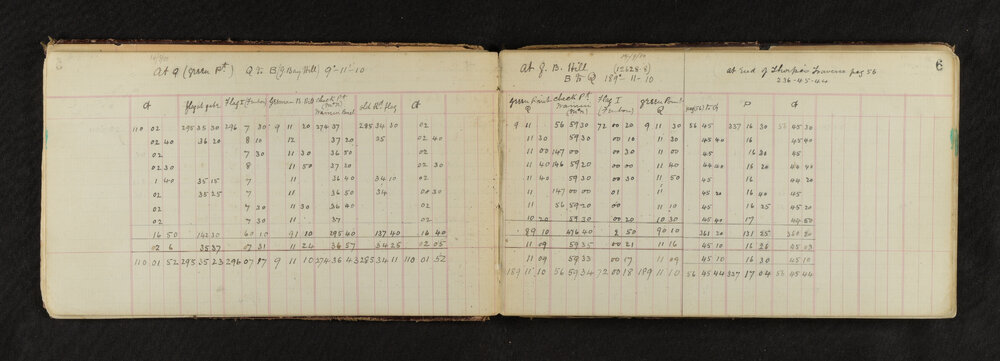 At Q (green Pt) Q to B (J. Bay Hill) 9°-11'-10
110 02 295 35 30 296 7 30 9 11 20 274 37 285 34 30 02
02 40 36 20 8 10 12 37 20 35 02 40
02 7 30 11 30 36 50 02
02 30 8 11 50 37 20 02 30
1 40 35 15 7 11 36 40 34 10 02
02 35 25 7 11 36 50 34 00 30
02 7 30 11 30 36 40 02
02 7 30 11 37 02
16 50 142 30 60 10 91 10 295 40 137 40 16 40
02 6 35 37 07 31 11 24 36 57 34 25 02 05
110 01 52 295 35 23 296 07 17 9 11 10 274 36 43 285 34 11 110 01 52
At J. B. Hill (12628.8)
B to Q 189° 11-10
green Point Q check Pt Flag I (Fenton) green Point Q
9 11 56 59 30 72 00 20 9 11 30
11 30 59 30 00 10 11 30
11 00 147 00 00 30 11 00
11 40 146 59 20 00 11 40
11 40 59 30 00 30 11 50
11 147 00 00 01 11
11 56 59 20 00 11 10
10 20 59 30 00 20 10 30
89 10 476 40 2 50 90 10
11 09 59 35 00 21 11 16
11 09 59 33 00 17 11 09
189 11 10 56 59 34 72 00 18 189 11 10
6
at end of Thorpe's Traverse pag 56
236-45-44
P
56 45 337 16 30 56 45 30
45 40 16 45 40
45 16 30 45
44 40 16 20 44 40
45 16 44 20
45 20 16 40 45
45 16 25 45 20
45 40 17 44 50
361 20 131 25 360 20
45 10 16 26 45 03
45 10 16 30 45 10
56 45 44 337 17 04 56 45 44